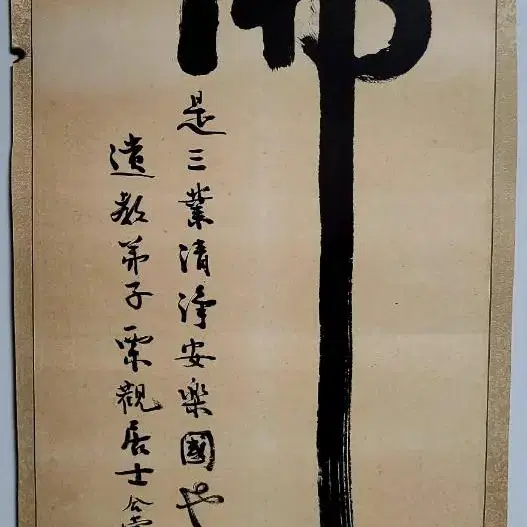 佛
是三業清淨安樂國也
遺教弟子栗觀居士合